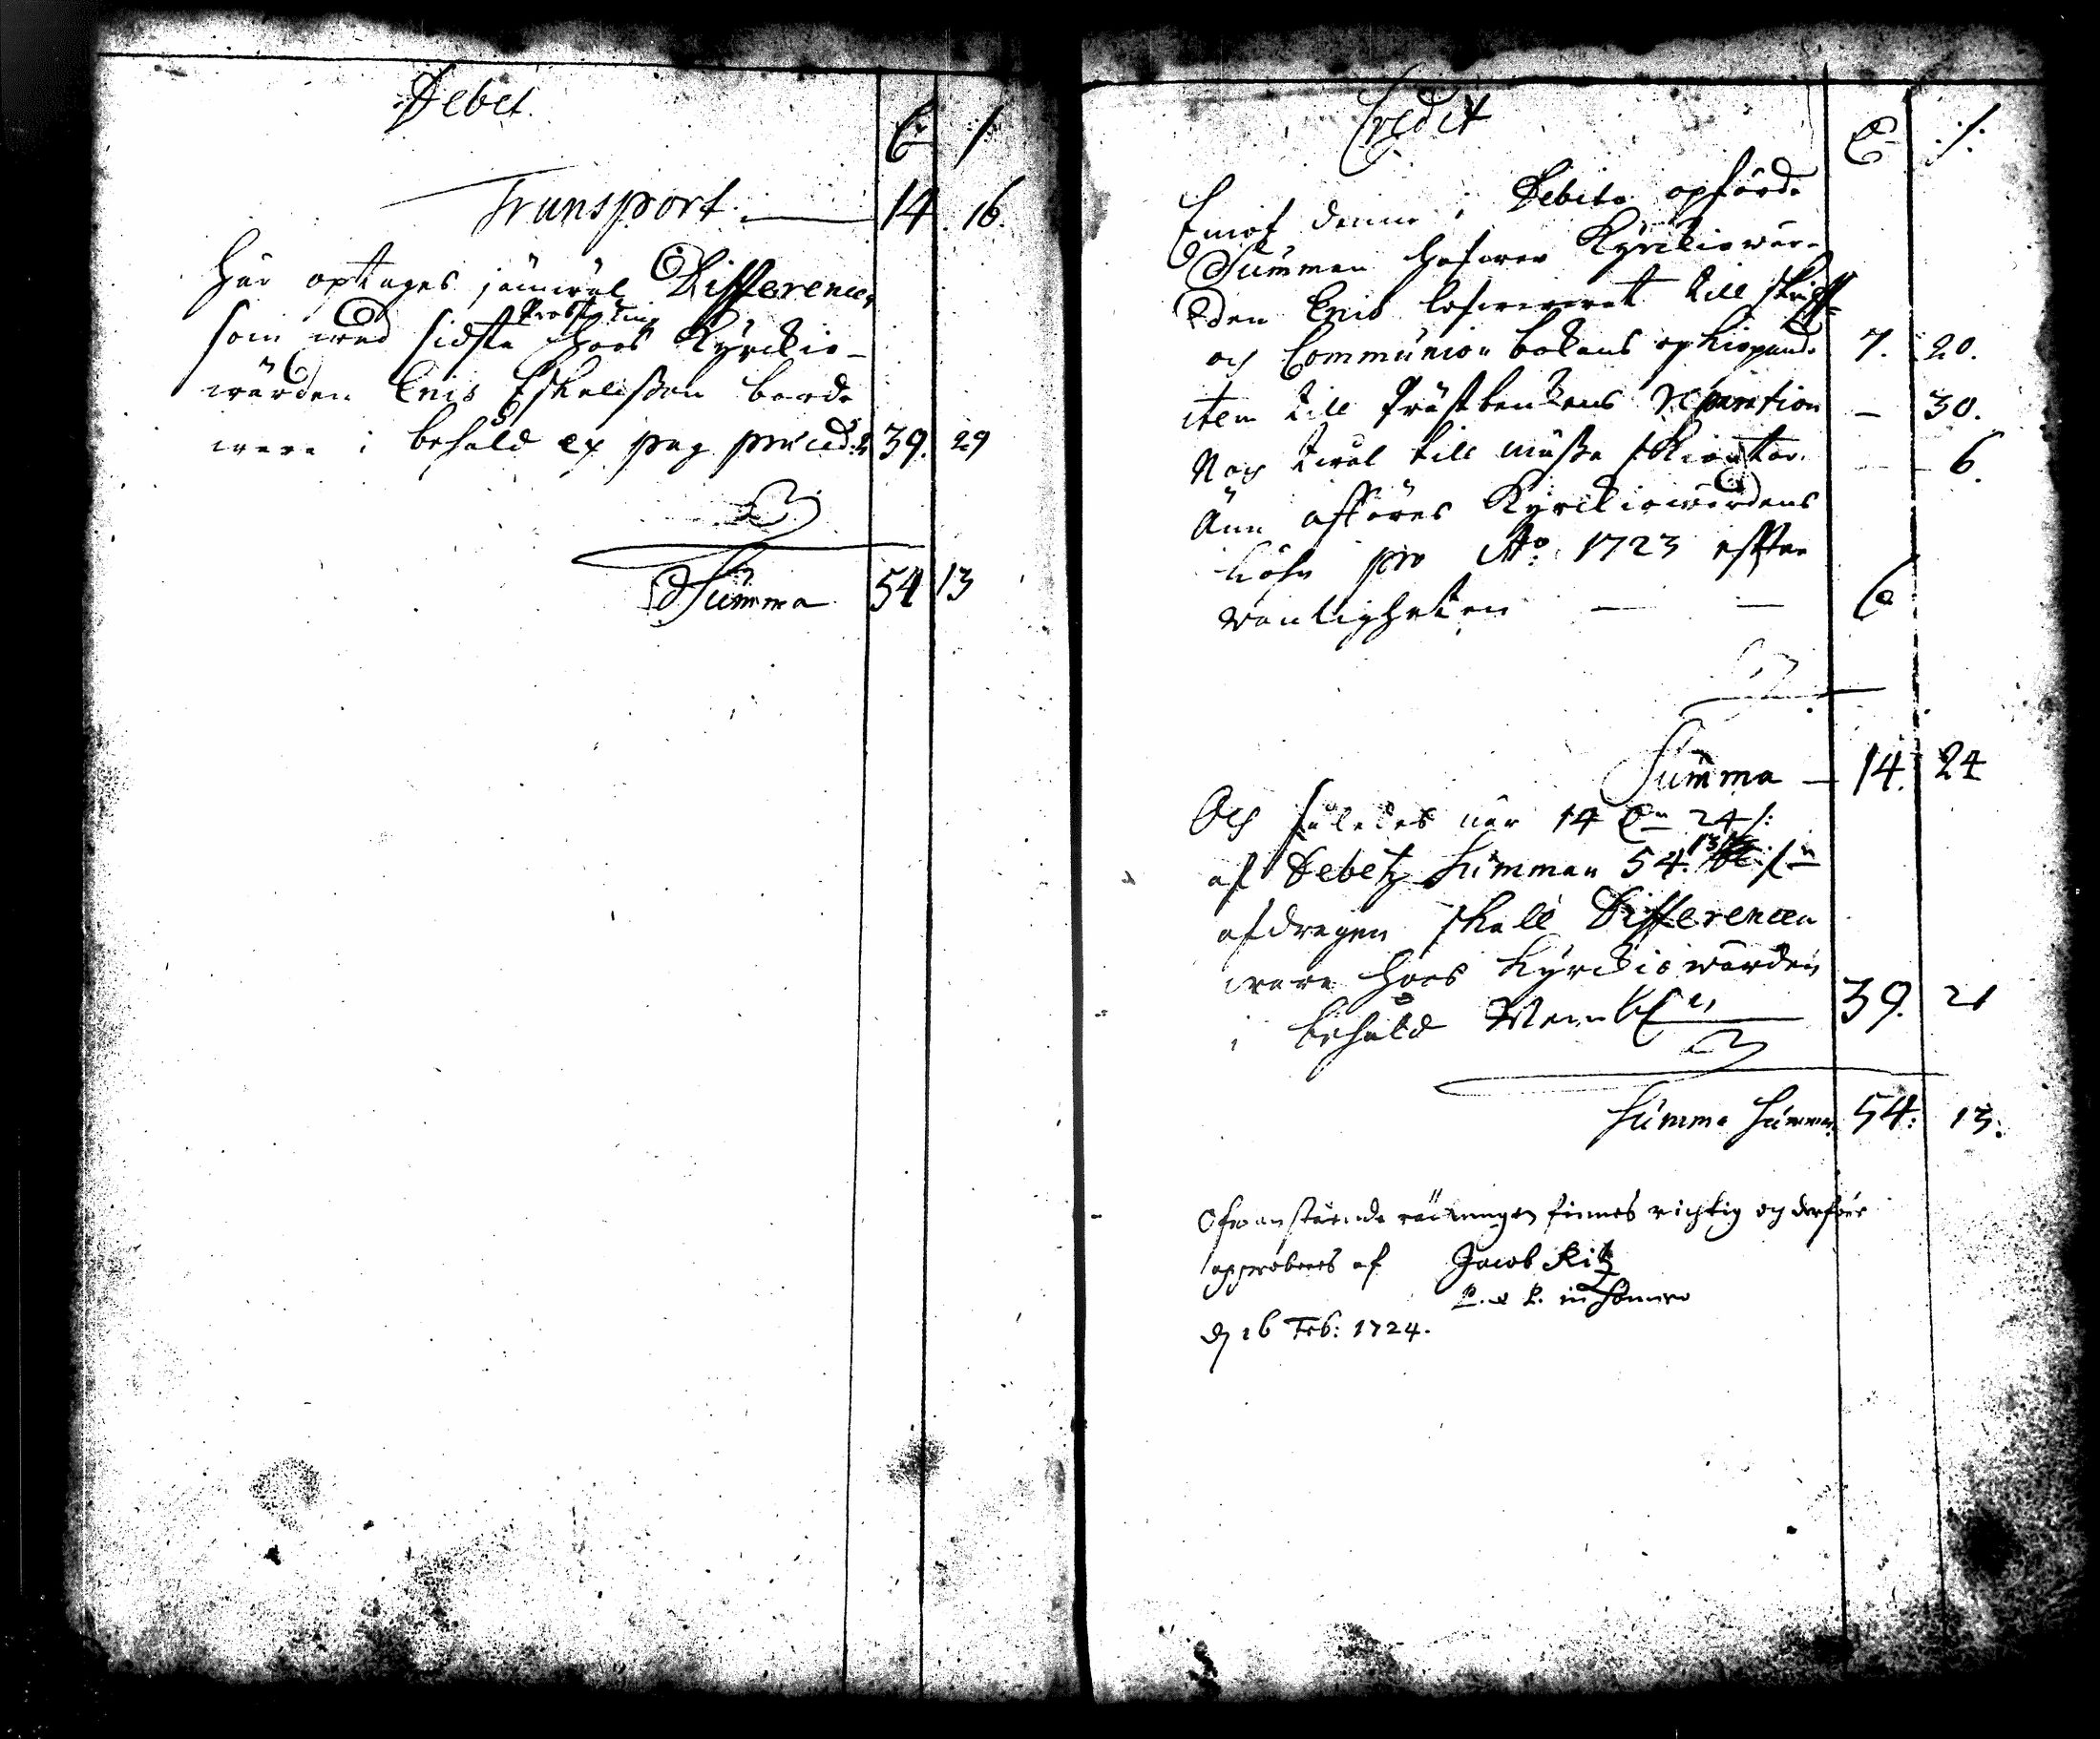 Debet.
Transport. — 14. 16.
Här optages jämwäl Differencen
som wed sidsta Probstting hoos Kyrckio-
wärden Eris Eskelsson borde
wara i behåld ex pag præced: 39. 29
Summa 54 13
Credit
Emot denne i Debito opförde
Summan hafwer Kyrckiowär-
den Eris lefwererat till skrifft-
och Communion bokens opkiöpande 7. 20.
item till Prästbenkens reparation — 30.
Noch twål till mässe skiortor. — 6.
Änn afföres Kyrckiowärdens
löhn pro Ao: 1723 efter
wanligheten — — 6
Summa — 14. 24
Och således när 14 24
af Debetz Summan 54. 13
afdragen skall Differencen
wara hoos Kyrckiowärden
i behåld 39. 21
Summa Summar. 54: 13:
Ofwanstående räckningen finnes richtig och derföre
approberes af Jacob Ritz
P. & P. in Somero
d 16 Feb: 1724.